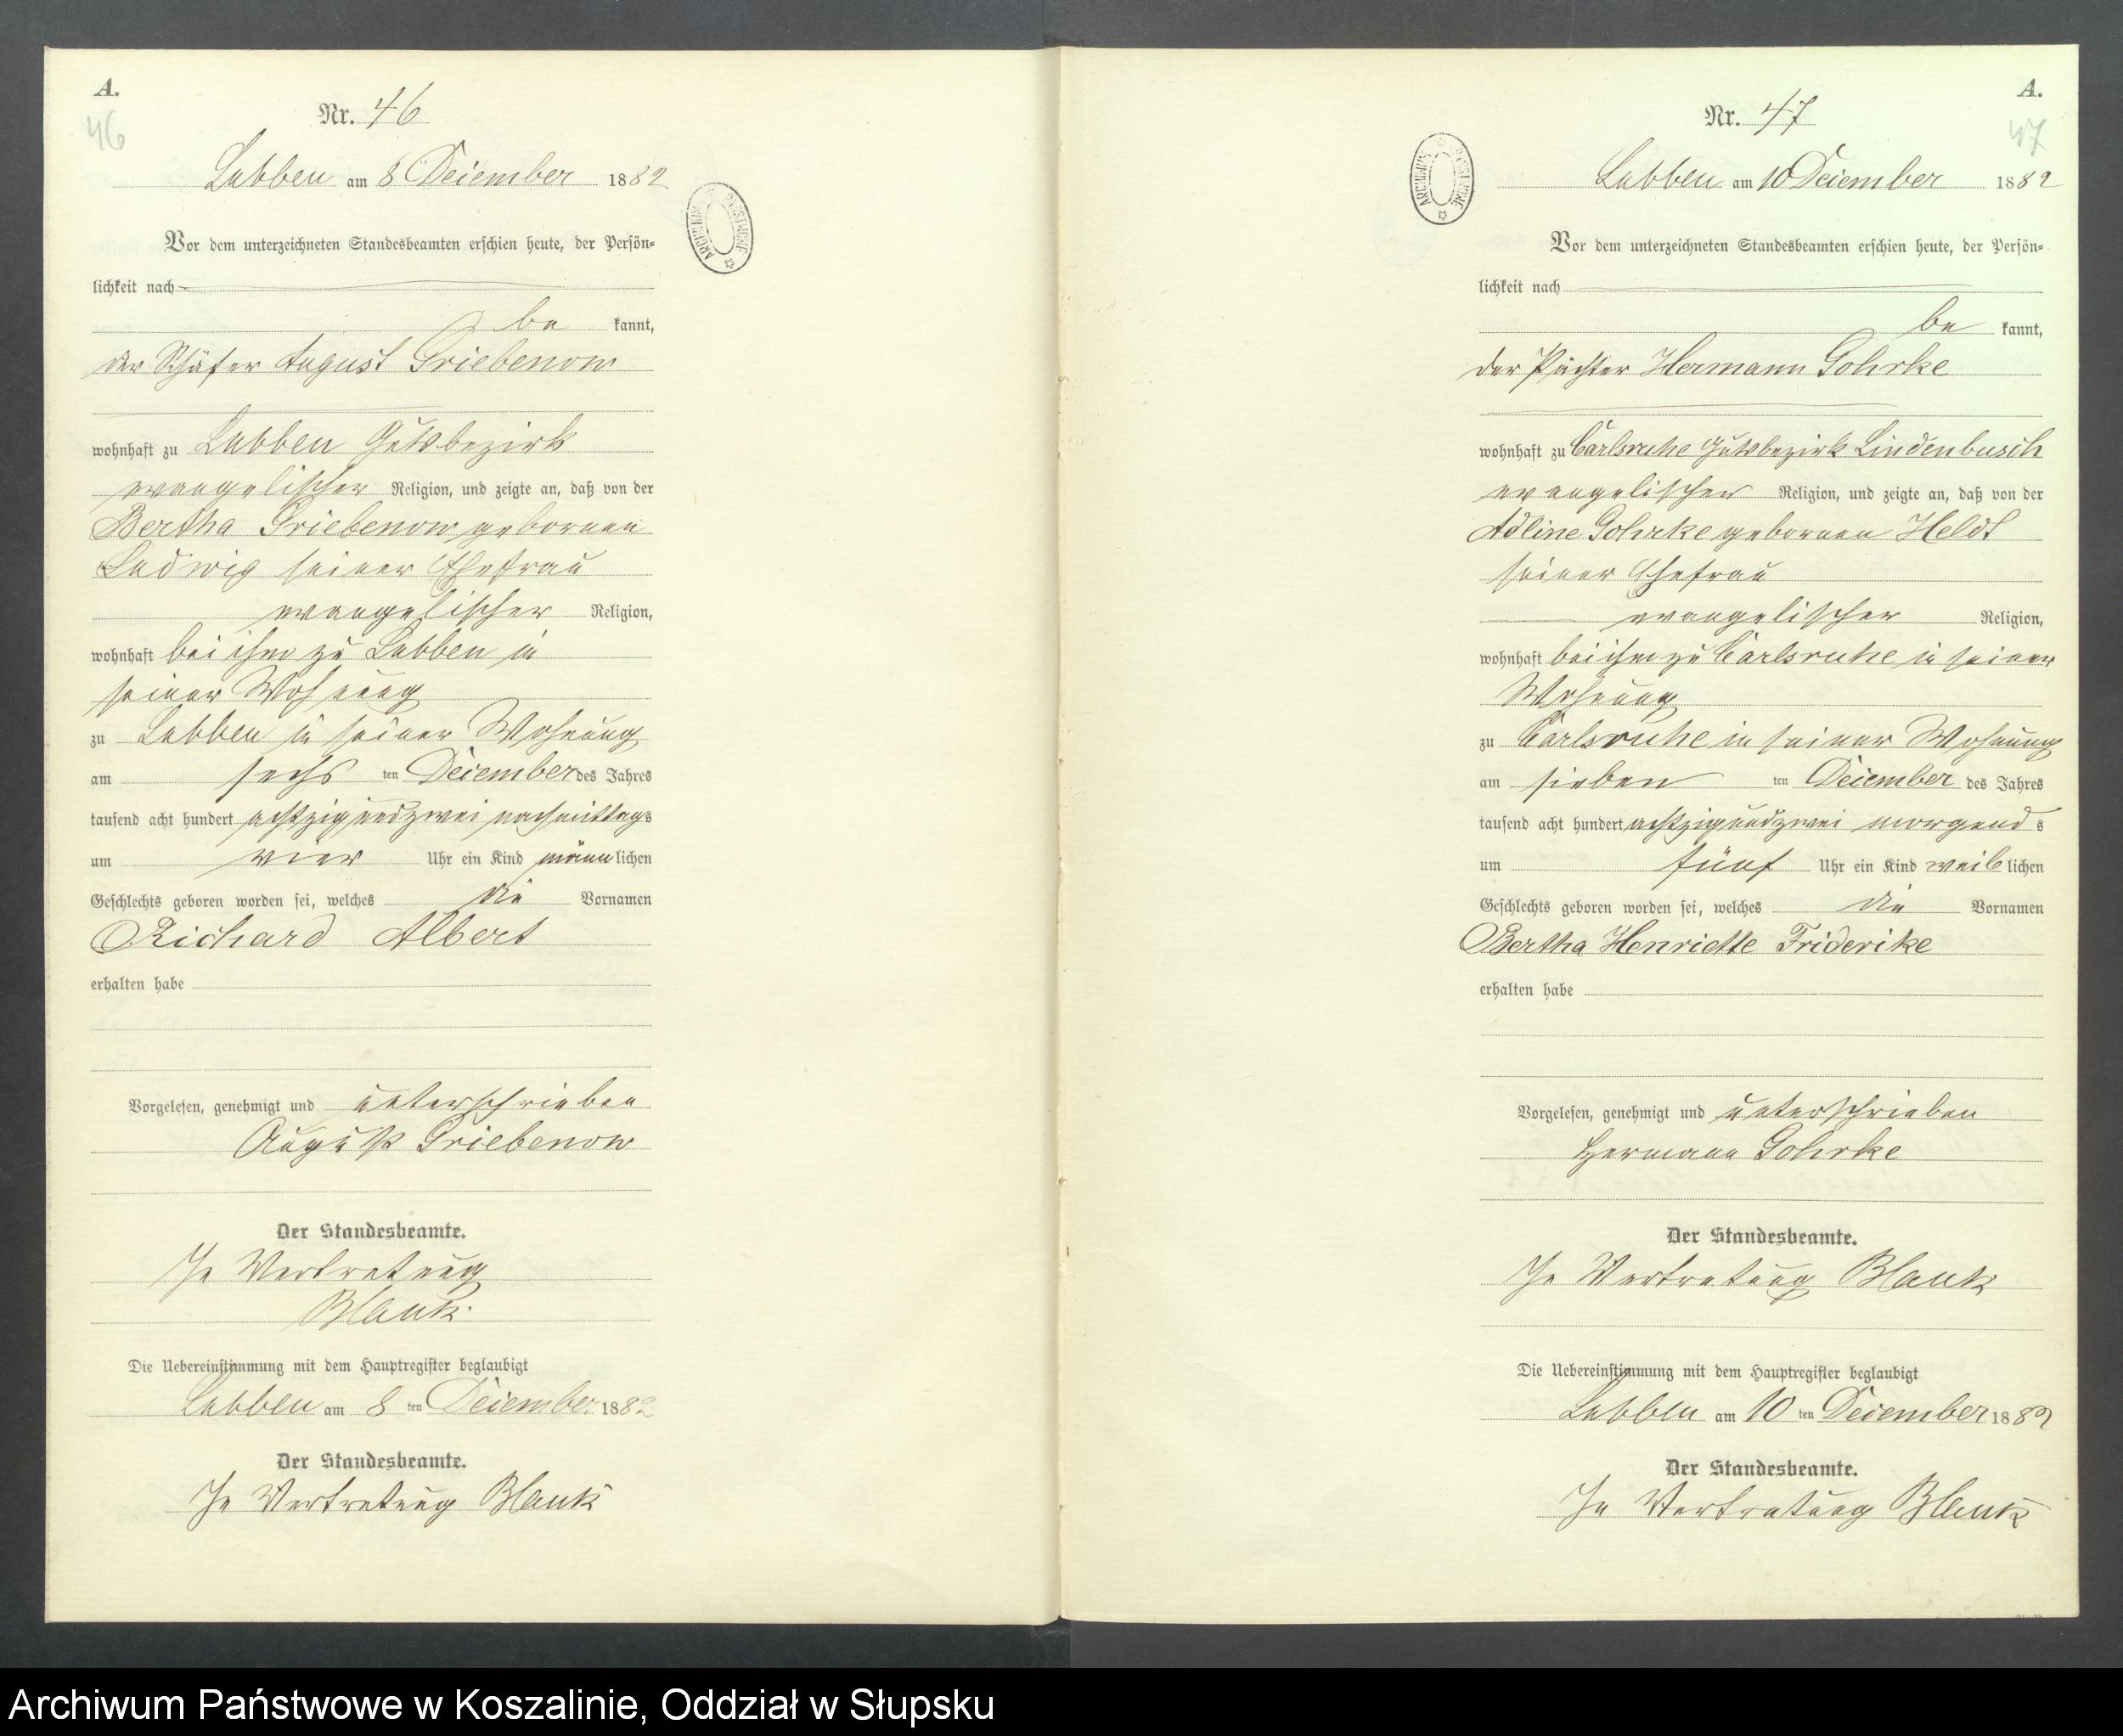 A.
46
Nr. 46
Labben am 8 Dezember 1882
Vor dem unterzeichneten Standesbeamten erschien heute, der Persön-
lichkeit nach
be kannt,
der Schäfer August Griebenow
wohnhaft zu Labben Gutsbezirk
evangelischer Religion, und zeigte an, daß von der
Bertha Griebenow geborenen
Ludwig seiner Ehefrau
evangelischer Religion,
wohnhaft bei ihm zu Labben in
seiner Wohnung
zu Labben in seiner Wohnung
am sechs ten Dezember des Jahres
tausend acht hundert achtzig und zwei nachmittags
um vier Uhr ein Kind männlichen
Geschlechts geboren worden sei, welches die Vornamen
Richard Albert
erhalten habe
Vorgelesen, genehmigt und unterschrieben
August Griebenow
Der Standesbeamte.
In Vertretung
Blank.
Die Uebereinstimmung mit dem Hauptregister beglaubigt
Labben am 8 ten Dezember 1882
Der Standesbeamte.
In Vertretung Blank
ARCHIWUM PAŃSTWOWE
A.
47
Nr. 47
ARCHIWUM PAŃSTWOWE
Labben am 10 Dezember 1882
Vor dem unterzeichneten Standesbeamten erschien heute, der Persön-
lichkeit nach
be kannt,
der Pächter Hermann Gohrke
wohnhaft zu Carlsruhe Gutsbezirk Lindenbusch
evangelischer Religion, und zeigte an, daß von der
Adline Gohrke geborenen Heldt
seiner Ehefrau
evangelischer Religion,
wohnhaft bei ihm zu Carlsruhe in seiner
Wohnung
zu Carlsruhe in seiner Wohnung
am sieben ten Dezember des Jahres
tausend acht hundert achtzig und zwei morgends
um fünf Uhr ein Kind weiblichen
Geschlechts geboren worden sei, welches die Vornamen
Bertha Henriette Friderike
erhalten habe
Vorgelesen, genehmigt und unterschrieben
Hermann Gohrke
Der Standesbeamte.
In Vertretung Blank
Die Uebereinstimmung mit dem Hauptregister beglaubigt
Labben am 10 ten Dezember 1882
Der Standesbeamte.
In Vertretung Blank
Archiwum Państwowe w Koszalinie, Oddział w Słupsku